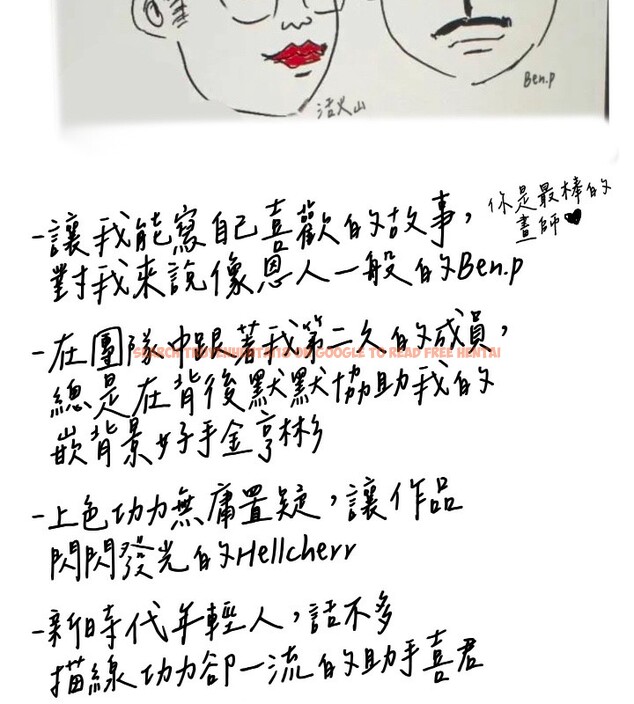 活火山
Ben.p
-讓我能寫自己喜歡的故事，
對我来說像恩人一般的Ben.p
你是最棒的
畫師
-在團隊中跟著我第二久的成員，
SEARCH THUYENNHANTAI18 ON GOOGLE TO READ FREE HENTAI
總是在背後默默協助我的
嵌背景好手金亨彬
-上色功力無庸置疑，讓作品
閃閃發光的Hellcherr
-新時代年輕人，話不多
描線功力卻一流的助手喜君